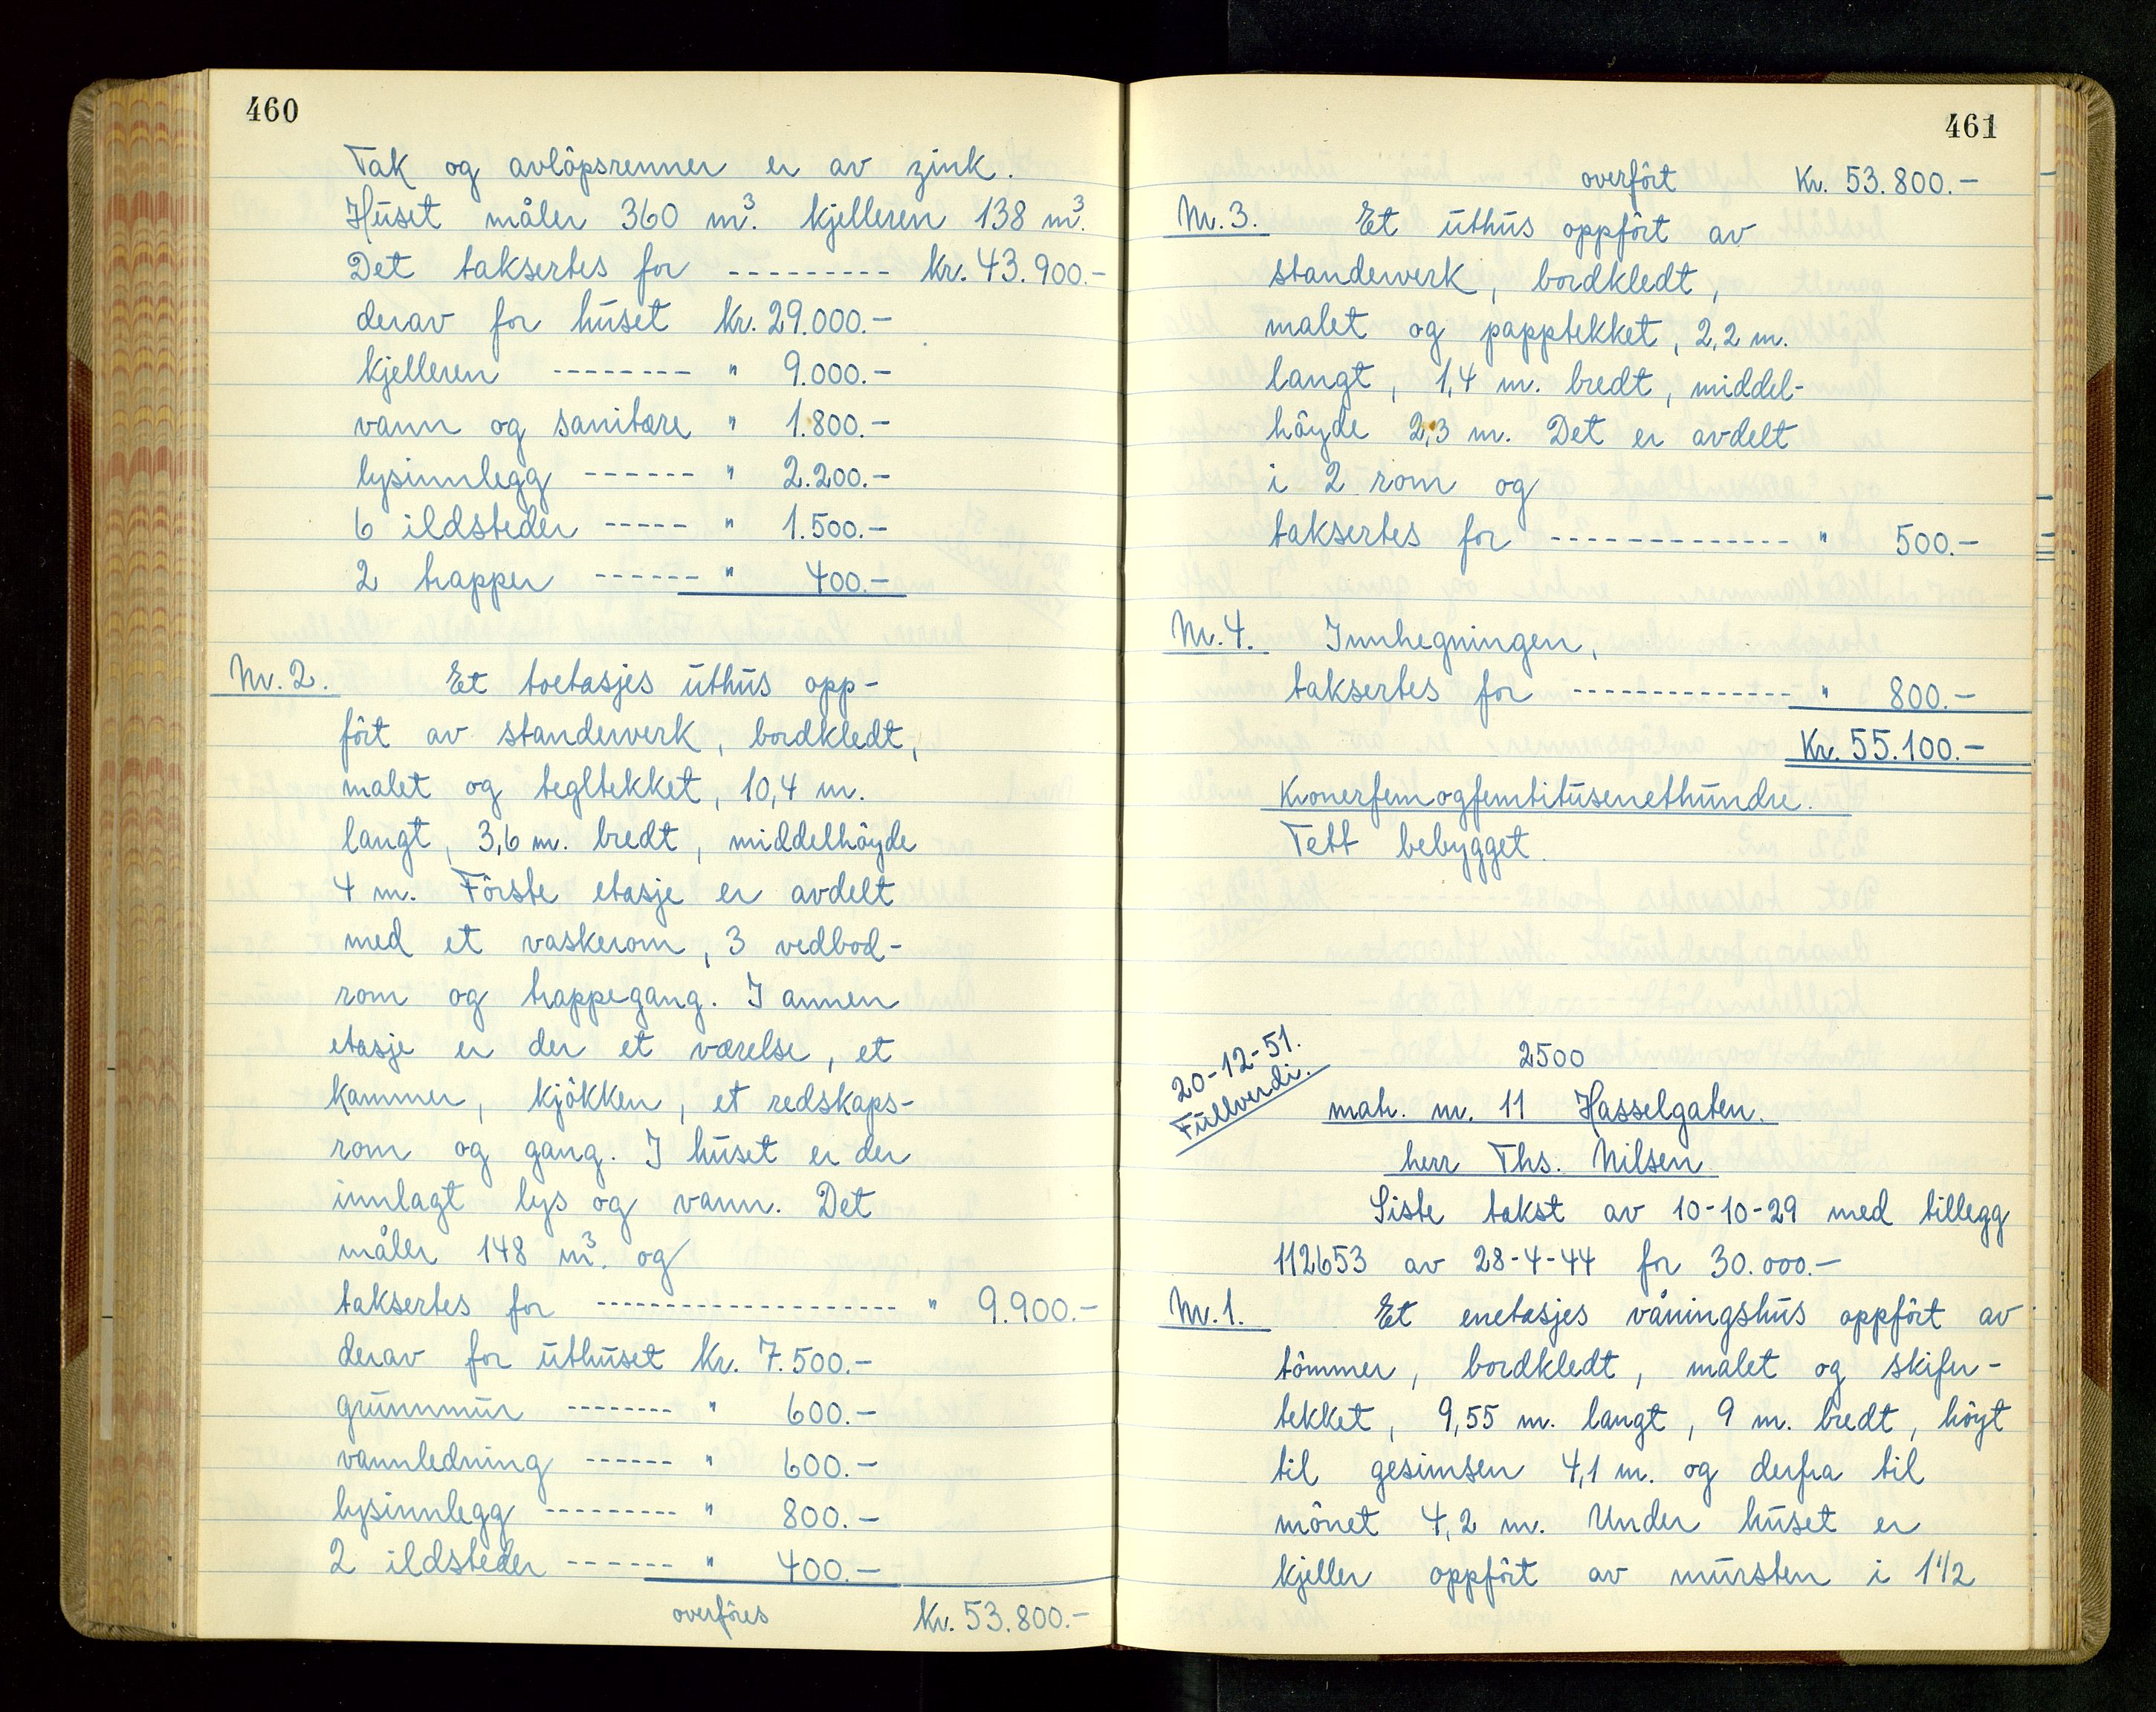 460
Tak og avlöpsrenner er av zink.
Huset måler 360 m³. kjelleren 138 m³.
Det taksertes for --------- kr. 43.900.-
derav for huset kr. 29.000.-
kjelleren -------- " 9.000.-
vann og sanitære " 1.800.-
lysinnlegg ------ " 2.200.-
6 ildsteder ----- " 1.500.-
2 trapper ------ " 400.-
Nr. 2. Et toetasjes uthus opp-
fört av standerverk, bordkledt,
malet og tegltekket, 10,4 m.
langt, 3,6 m. bredt, middelhöyde
4 m. Förste etasje er avdelt
med et vaskerom, 3 vedbod-
rom og trappegang. I annen
etasje er der et værelse, et
kammer, kjökken, et redskaps-
rom og gang. I huset er der
innlagt lys og vann. Det
måler 148 m³. og
taksertes for -------------------- " 9.900.-
derav for uthuset kr. 7.500.-
grunnmur -------- " 600.-
vannledning ------ " 600.-
lysinnlegg --------- " 800.-
2 ildsteder ------- " 400.-
overföres kr. 53.800.-
461
overfört kr. 53.800.-
Nr. 3. Et uthus oppfört av
standerverk, bordkledt,
malet og papptekket, 2,2 m.
langt, 1,4 m. bredt, middel-
höyde 2,3 m. Det er avdelt
i 2 rom og
taksertes for -------------- " 500.-
Nr. 4. Innhegningen,
taksertes for -------------- " 800.-
Kr. 55.100.-
Kronerfemogfemtitusenethundre.
Tett bebygget.
20-12-51.
Fullverdi.
2500
matr. nr. 11 Hasselgaten.
herr Ths. Nilsen
Siste takst av 10-10-29 med tillegg
112653 av 28-4-44 for 30.000.-
Nr. 1. Et enetasjes våningshus oppfört av
tömmer, bordkledt, malet og skifer-
tekket, 9,55 m. langt, 9 m. bredt, höyt
til gesimsen 4,1 m. og derfra til
mönet 4,2 m. Under huset er
kjeller oppfört av mursten i 1 1/2